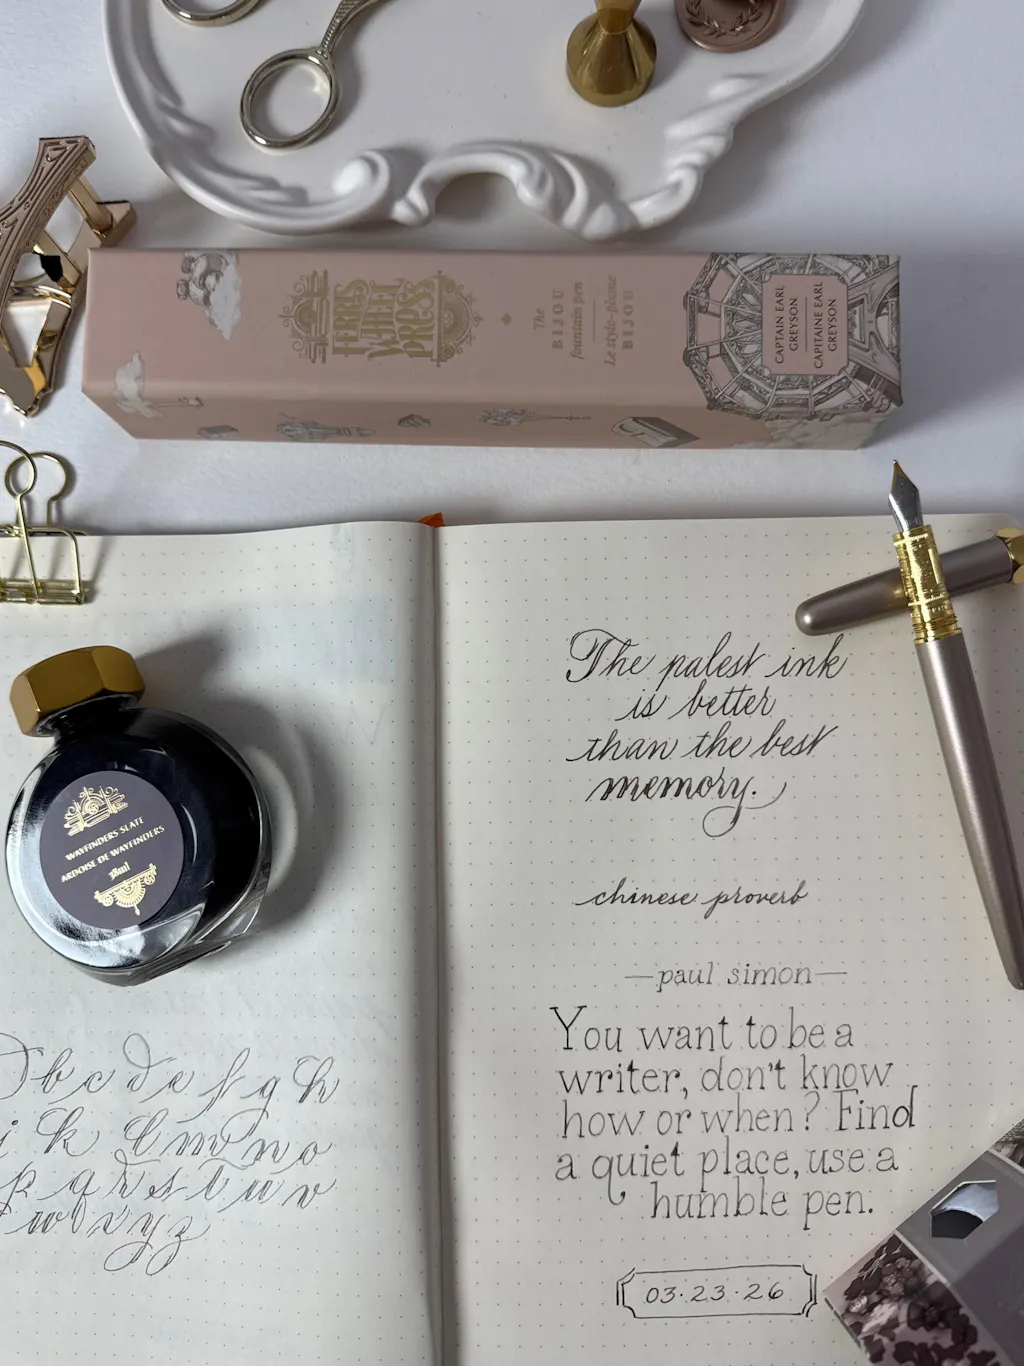 FERRIS
WHEEL
PRESS
The
BIJOU
fountain pen
Le stylo-plume
BIJOU
CAPTAIN EARL
GREYSON
CAPITAINE EARL
GREYSON
The palest ink
is better
than the best
memory.
chinese proverb
—paul simon—
You want to be a
writer, don't know
how or when? Find
a quiet place, use a
humble pen.
03·23·26
WAYFINDERS SLATE
ARDOISE DE WAYFINDERS
38ml
b c d e f g h
i k l m n o
p q r s t u v
w x y z